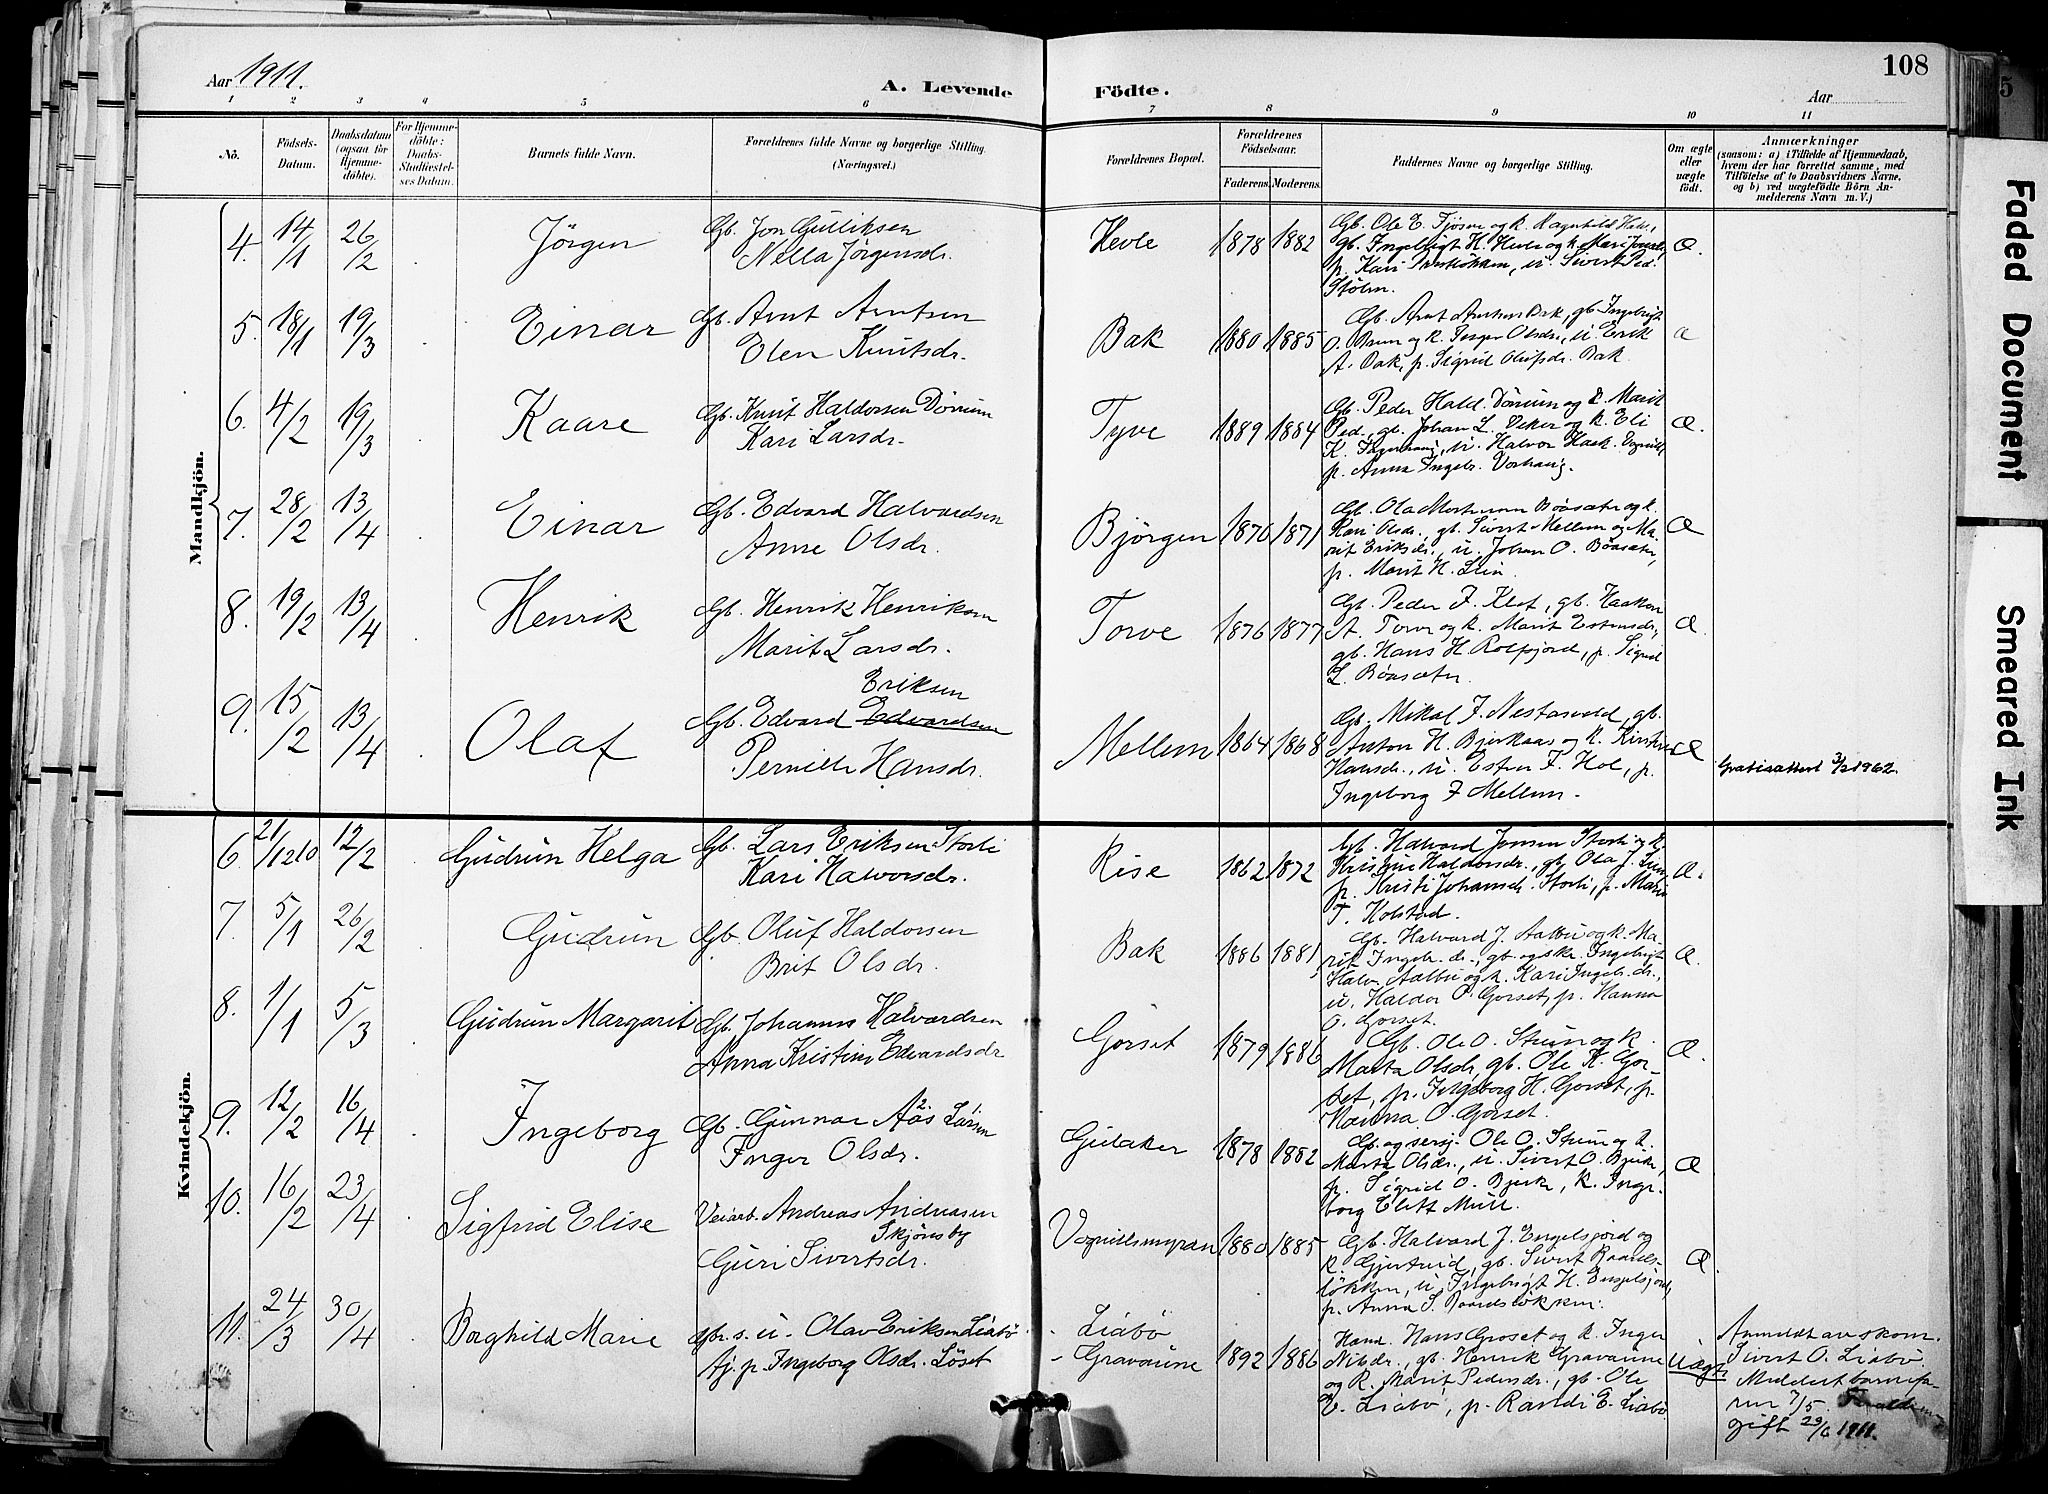 108
Aar 1911.
A. Levende Födte.
Aar
1 2 3 4 5 6 7 8 9 10 11
No.
Födsels-Datum.
Daabsdatum (ogsaa for Hjemme-döbte).
For Hjemme-döbte: Daabs-Stadfæstel-ses Datum.
Barnets fulde Navn.
Forældrenes fulde Navne og borgerlige Stilling. (Næringsvei.)
Forældrenes Bopæl.
Forældrenes Födselsaar.
Faderens. Moderens.
Faddernes Navne og borgerlige Stilling.
Om ægte eller uægte födt.
Anmærkninger
(saasom: a) i Tilfælde af Hjemmedaab, hvem der har forrettet samme, med Tilföielse af to Daabsvidners Navne, og b) ved uægtefödte Börn An-melderens Navn m. V.)
Mandkjön.
4. 14/1 26/2 Jörgen Gb. Jon Gulliksen
Nella Jörgensdr.
Hevle 1878 1882
Gb. Ole E. Fjösne og K. Ragnhild Halv.,
gb. Ingebrigt H. Hevle og K. Mari
p. Kari
Æ.
5. 18/1 19/3 Einar Gb. Arnt Arntsen
Olen Knutsdr.
Bak 1880 1885
Gb. Arnt Arntsen Bak, gb. Ingebrigt
O. Brun og K. Inger Olsdr., u. Erik
A. Bak, p. Sigrid Olufsdr. Bak
Æ
6. 4/2 19/3 Kaare Gb. Knut Haldorsen Dörrum
Kari Larsdr.
Tyve 1889 1884
Gb. Peder Hald. Dörrum og K. Marit
Ped., gb. Johan L. Veker og K. Eli
K. Fagerhaug, u. Halvor Haak. Vognill,
p. Anna Ingebr. Vorhaug.
Æ.
7. 28/2 13/4 Einar Gb. Edvard Halvardsen
Anne Olsdr.
Björgen 1870 1871
Gb. Ola Böasæter og K.
Kari Olsdr., gb. Sivert Mellem og Ma-
rit Eriksdr., u. Johan O. Böasæter,
p. Marit H. Lien.
Æ
8. 19/2 13/4 Henrik Gb. Henrik Henriksen
Marit Larsdr.
Torve 1876 1877
Gb. Peder J. Klet, gb. Haakon
A. Torve og K. Marit Estensdr.,
gb. Hans H. Rolfsjord, p. Sigrid
L. Böasæter.
Æ.
9. 15/2 13/4 Olaf Eriksen
Gb. Edvard Edvardsen
Pernille Hansdr.
Mellem 1864 1868
Gb. Mikal J. Nestavold, gb.
Anton H. Bjerkaas og K. Kirsten
Hansdr., u. Esten F. Hol, p.
Ingeborg F Mellem.
Æ Gratisattest 3/2 1962.
Kvindekjön.
6 21/12 10 12/2 Gudrun Helga Gb. Lars Eriksen Storli
Kari Halvorsdr.
Rise 1862 1872
Gb. Halvard Jonsen Storli og K.
Kristine Haldorsdr., gb. Ola J. Lien,
p. Kristi Johansdr. Storli, p. Marie
T. Holstad.
Æ.
7. 5/1 26/2 Gudrun Gb. Oluf Haldorsen
Brit Olsdr.
Bak 1886 1881
Gb. Halvard J. Aalbu og K. Ma-
rit Ingebr. dr., gb. og skr. Ingebrigt
Halv. Aalbu og K. Kari Ingebr. dr.,
u. Haldor O. Gorset, p. Hanna
O. Gorset.
Æ.
8. 1/1 5/3 Gudrun Margarit Gb. Johannes Halvardsen
Anna Kristine Edvardsdr
Gorset 1879 1886
Gb. Ole O. Stuen og K.
Marta Olsdr, gb. Ole K. Gor-
set, p. Ingeborg H. Gorset, p.
Hanna O. Gorset.
Æ.
9. 12/2 16/4 Ingeborg Gb. Gunnar Aas Larsen
Inger Olsdr.
Gulaker 1878 1882
Gb. og sersj. Ole O. Stuen og K.
Marta Olsdr., u. Sivert O. Bjerke,
p. Sigrid O. Bjerke, K. Inge-
borg Elett Mull.
Æ
10. 16/2 23/4 Sigfrid Elise Veiarb. Andreas Andreasen
Skjönsby
Guri Sivertsdr.
Vognillsmyran 1880 1885
Gb. Halvard J. Engelsjord og
K. Gjertrud, gb. Sivert Baards-
lökken, u. Ingebrigt H. Engelsjord,
p. Anna S. Baardslökken.
Æ.
11. 24/3 30/4 Borghild Marie Gbr. s. u. Olav Eriksen Liabö
Tj. p. Ingeborg Olsdr. Löset
Liabö
Gravaune 1892 1886
Hand. Hans Groset og K. Inger
Nilsdr., gb. Henrik Gravaune
og K. Marit Pedersdr., gb. Ole
E. Liabö, p. Randi E. Liabö
Uægte
Anmeldt av skom.
Sivert O. Liabö
Meldt barnefa-
ren 7/5. Forældrene
gift 29/6 1911.
Faded Document
Smeared Ink